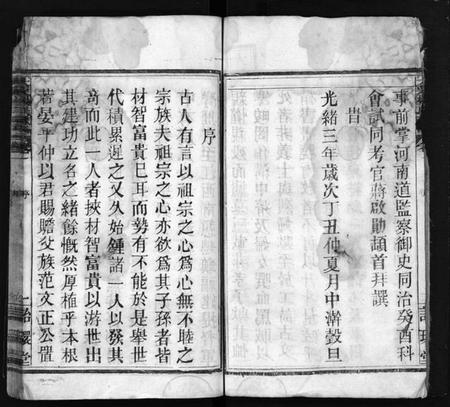 事前掌河南道監察御史同治癸酉科
會試同考官蔣啟勛頓首拜譔
旹
光緒三年歲次丁丑仲夏月中澣穀旦
序
古人有言以祖宗之心為心無不睦之
宗族夫祖宗之心亦欲為其子孫者皆
材智富貴已耳而勢有不能於是舉世
代積累遲之又久始鍾諸一人以發其
奇而此一人者挾材智富貴以游世出
其建功立名之緒餘慨然厚植乎本根
若晏平仲以君賜贍父族范文正公置
序